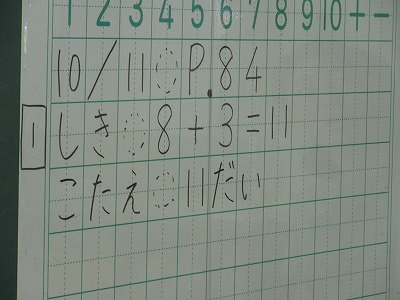 1 2 3 4 5 6 7 8 9 10 + −
10/11 P.84
1 しき 8+3=11
こたえ 11だい